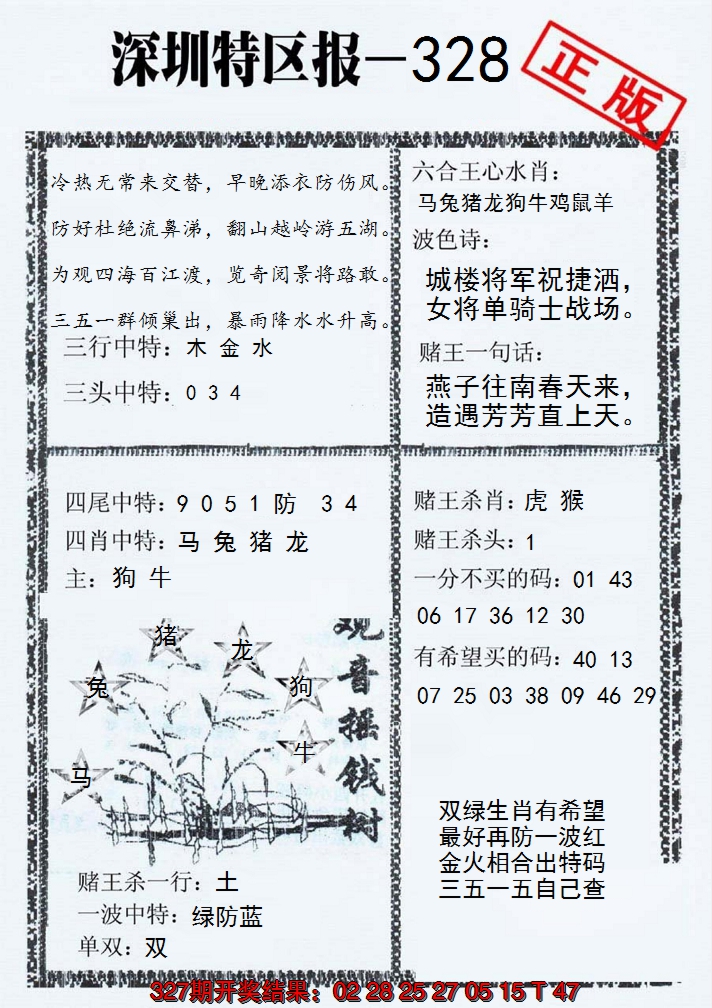 深圳特区报—328
正版
冷热无常来交替，早晚添衣防伤风。
防好杜绝流鼻涕，翻山越岭游五湖。
为观四海百江渡，览奇阅景将路敢。
三五一群倾巢出，暴雨降水水升高。
三行中特：木 金 水
三头中特：0 3 4
六合王心水肖：
马兔猪龙狗牛鸡鼠羊
波色诗：
城楼将军祝捷洒，
女将单骑士战场。
赌王一句话：
燕子往南春天来，
造遇芳芳直上天。
四尾中特：9 0 5 1 防 3 4
四肖中特：马 兔 猪 龙
主：狗 牛
猪
龙
兔
狗
牛
马
观音摇钱树
赌王杀一行：土
一波中特：绿防蓝
单双：双
赌王杀肖：虎 猴
赌王杀头：1
一分不买的码：01 43
06 17 36 12 30
有希望买的码：40 13
07 25 03 38 09 46 29
双绿生肖有希望
最好再防一波红
金火相合出特码
三五一五自己查
327期开奖结果：02 28 25 27 05 15 T 47